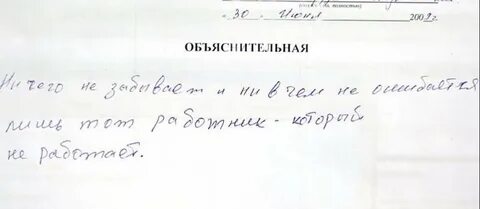 « 30 » Июня 2009 г.
ОБЪЯСНИТЕЛЬНАЯ
Ничего не забывает и ни в чем не ошибается
лишь тот работник - который
не работает.